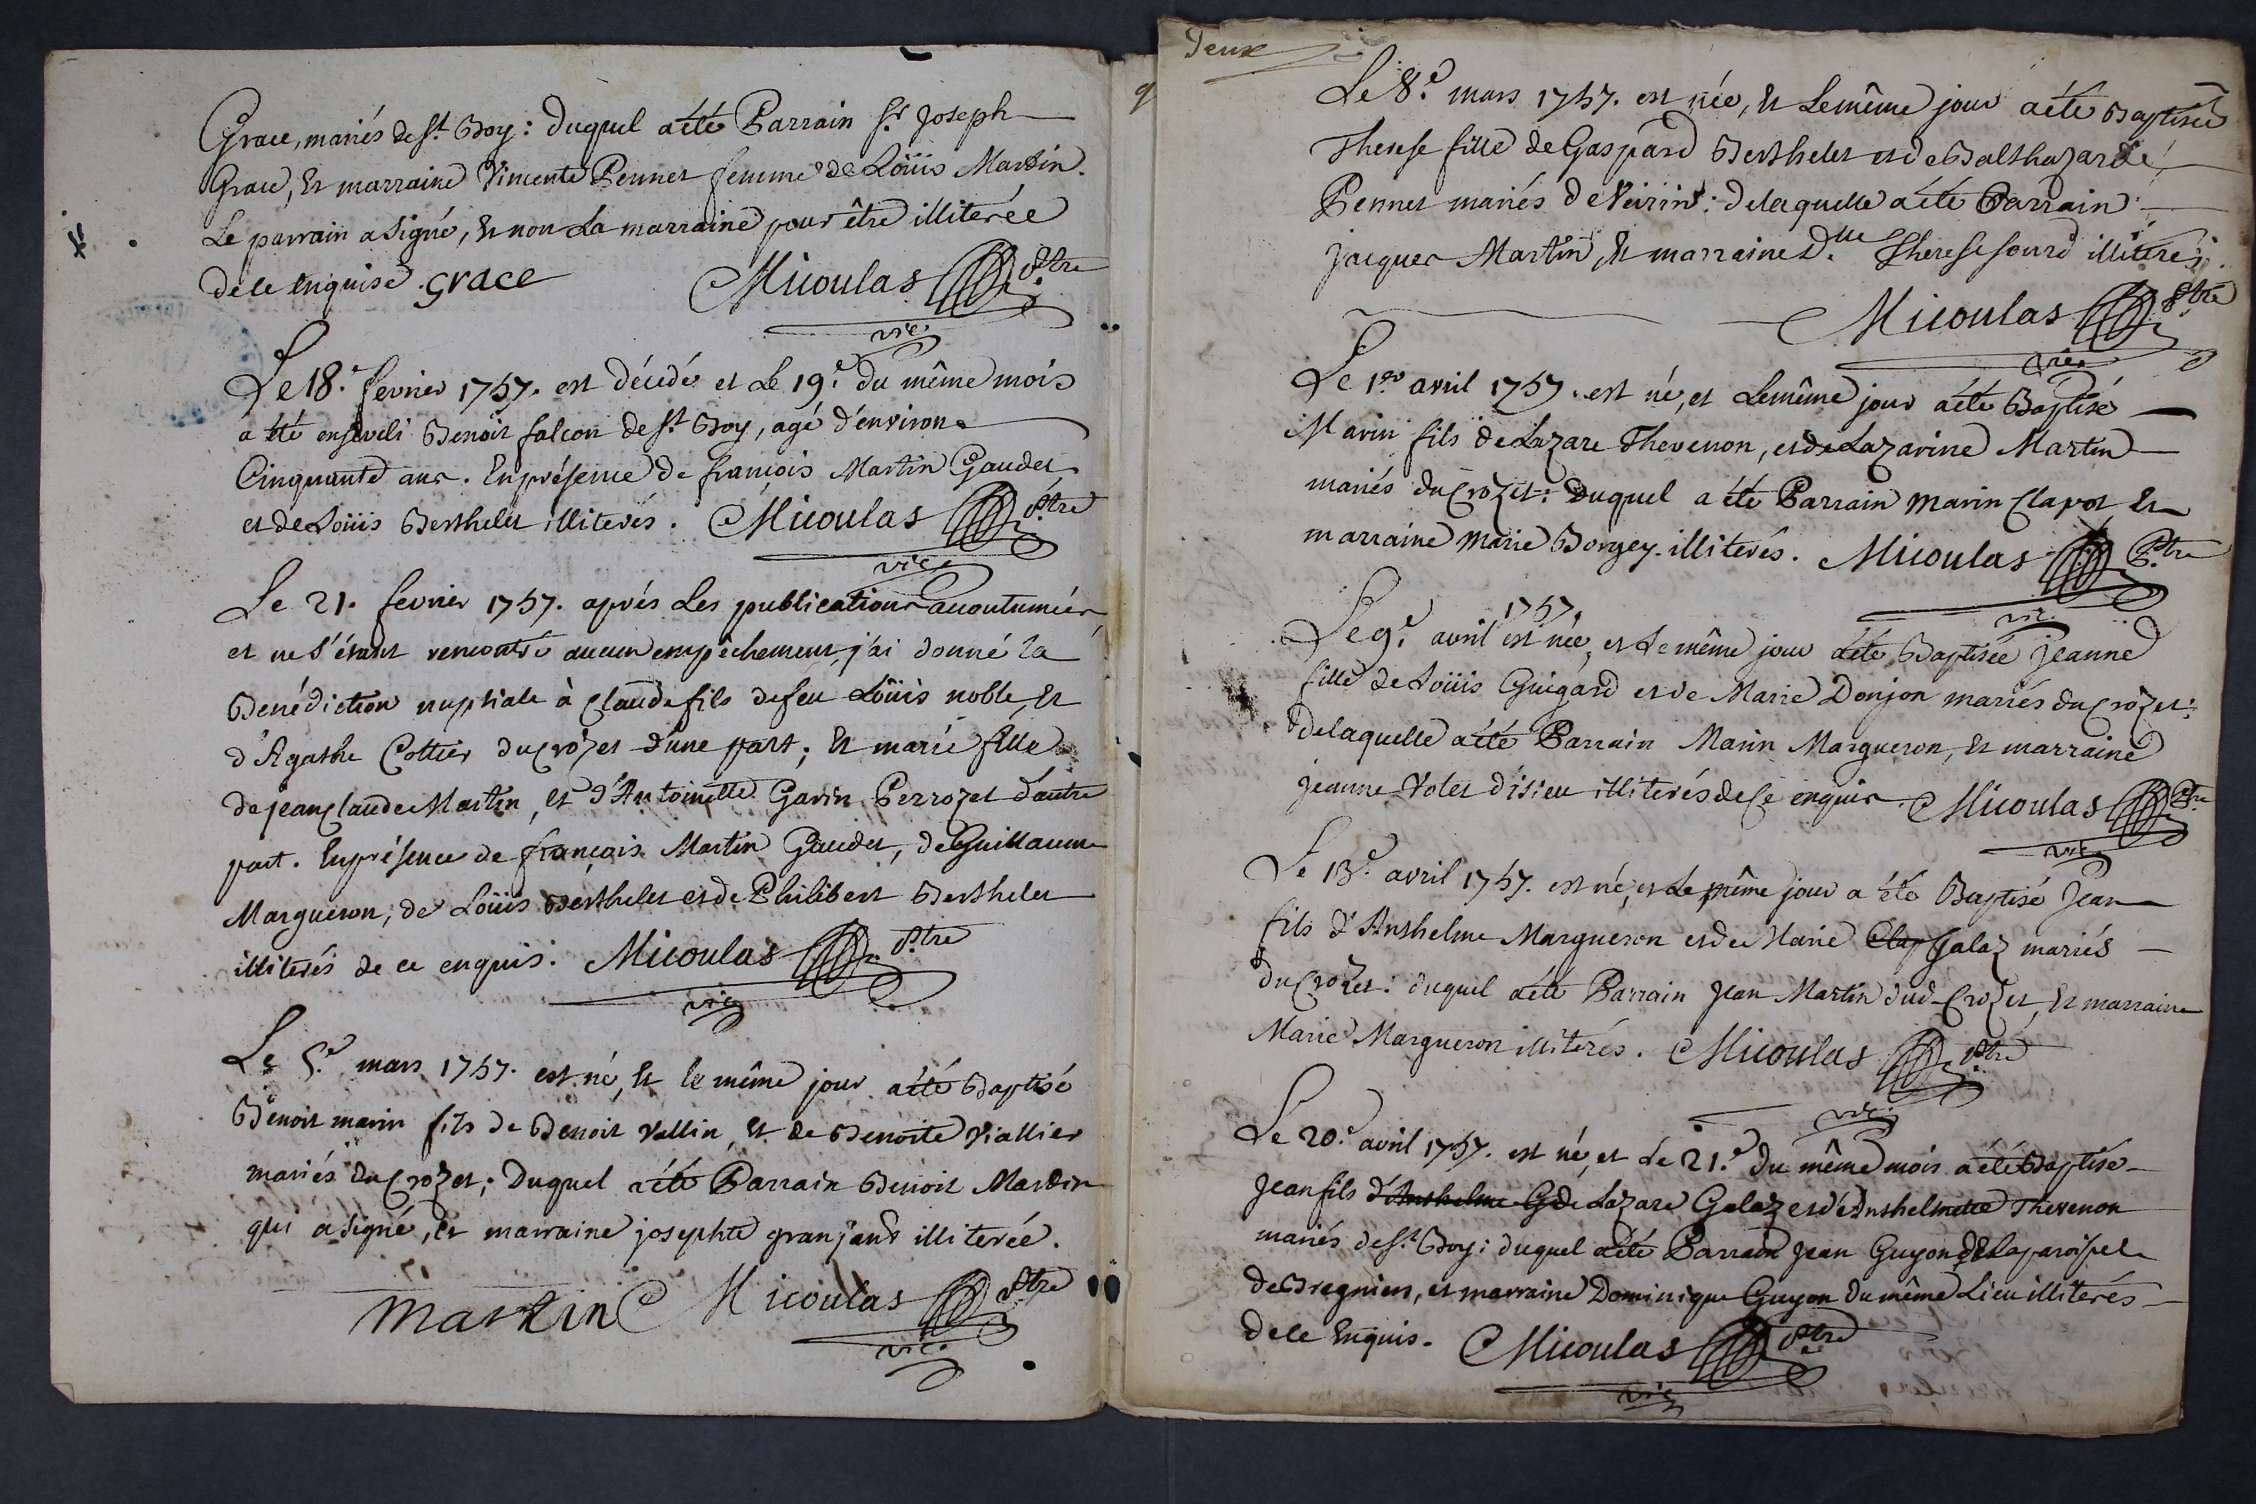 Grace, mariés de St. Boy: duquel a été Parrain Sr. Joseph
Grace, Et marraine Vincente Pennet femme de Loüis Martin.
Le parrain a signé, Et non La marraine pour être illiterée
de ce enquise. grace Micoulas Ptre
vic.
Le 18.e fevrier 1757. est décédé et Le 19.e du même mois
a été enseveli Benoit falcon de St. Boy, agé d'environ
Cinquante ans. En présence de françois Martin Gaudet
et de Loüis Berthelet illiterés. Micoulas Ptre
vic.
Le 21. fevrier 1757. aprés Les publications accoutumées
et ne s'étant rencontré aucun empêchement, j'ai donné la
Benédiction nuptiale à Claude fils de feu Loüis noble, Et
d'Agathe Cottier du Crozet d'une part; Et marie fille
de jean Claude Martin, et d'Antoinette Gavin Perrozet d'autre
part. En présence de françois Martin Gaudet, de Guillaume
Margueron, de Loüis Berthelet et de Philibert Berthelet
illiterés de ce enquis. Micoulas Ptre
vic.
Le 5.e mars 1757. est né, Et le même jour a été Baptisé
Benoit marin fils de Benoit Vallin, Et de Benoite Viallier
mariés du Crozet; Duquel a été Parrain Benoit Martin
qui a signé, Et marraine josephte granjand illiterée.
martin Micoulas Ptre
vic.
Deux
Le 8.e mars 1757. est née, Et Le même jour a été Baptisée
Therese fille de Gaspard Berthelet et de Balthazarde
Pennet mariés de Veirin: de laquelle a été Parrain
jacques Martin, Et marraine d.lle Therese sourd illiteres.
Micoulas Ptre
vic.
Le 1er avril 1757. est né, et Le même jour a été Baptisé
Marin fils de Lazare Thevenon, et de Lazarine Martin
mariés du Crozet: Duquel a été Parrain Marin Clapot Et
marraine Marie Borgey. illiterés. Micoulas Ptre
vic.
1757.
Le 9.e avril est née, et Le même jour a été Baptisée Jeanne
fille de Loüis Guigard et de Marie Donjon mariés du Crozet:
de laquelle a été Parrain Marin Margueron, Et marraine
Jeanne Volet d'isieu illiterés de ce enquis. Micoulas Ptre
vic.
Le 13.e avril 1757. est né, et Le même jour a été Baptisé Jean
fils d'Anthelme Margueron et de Marie Clap Galaz mariés
du Crozet: duquel a été Parrain Jean Martin dud. Crozet, Et marraine
Marie Margueron illiterés. Micoulas Ptre
vic.
Le 20.e avril 1757. est né, et Le 21.e du même mois a été Baptisé
Jean fils d'Anthelme G de Lazare Galaz et d'Anthelmette Thevenon
mariés de St. Boy: duquel a été Parrain Jean Guyon de La paroisse
de Bregnien, et marraine Dominique Guyon du même Lieu illiterés
de ce Enquis. Micoulas Ptre
vic.